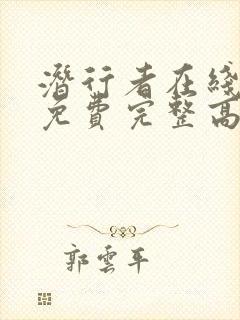 潛行者在綫
免費完整高
郭雲平